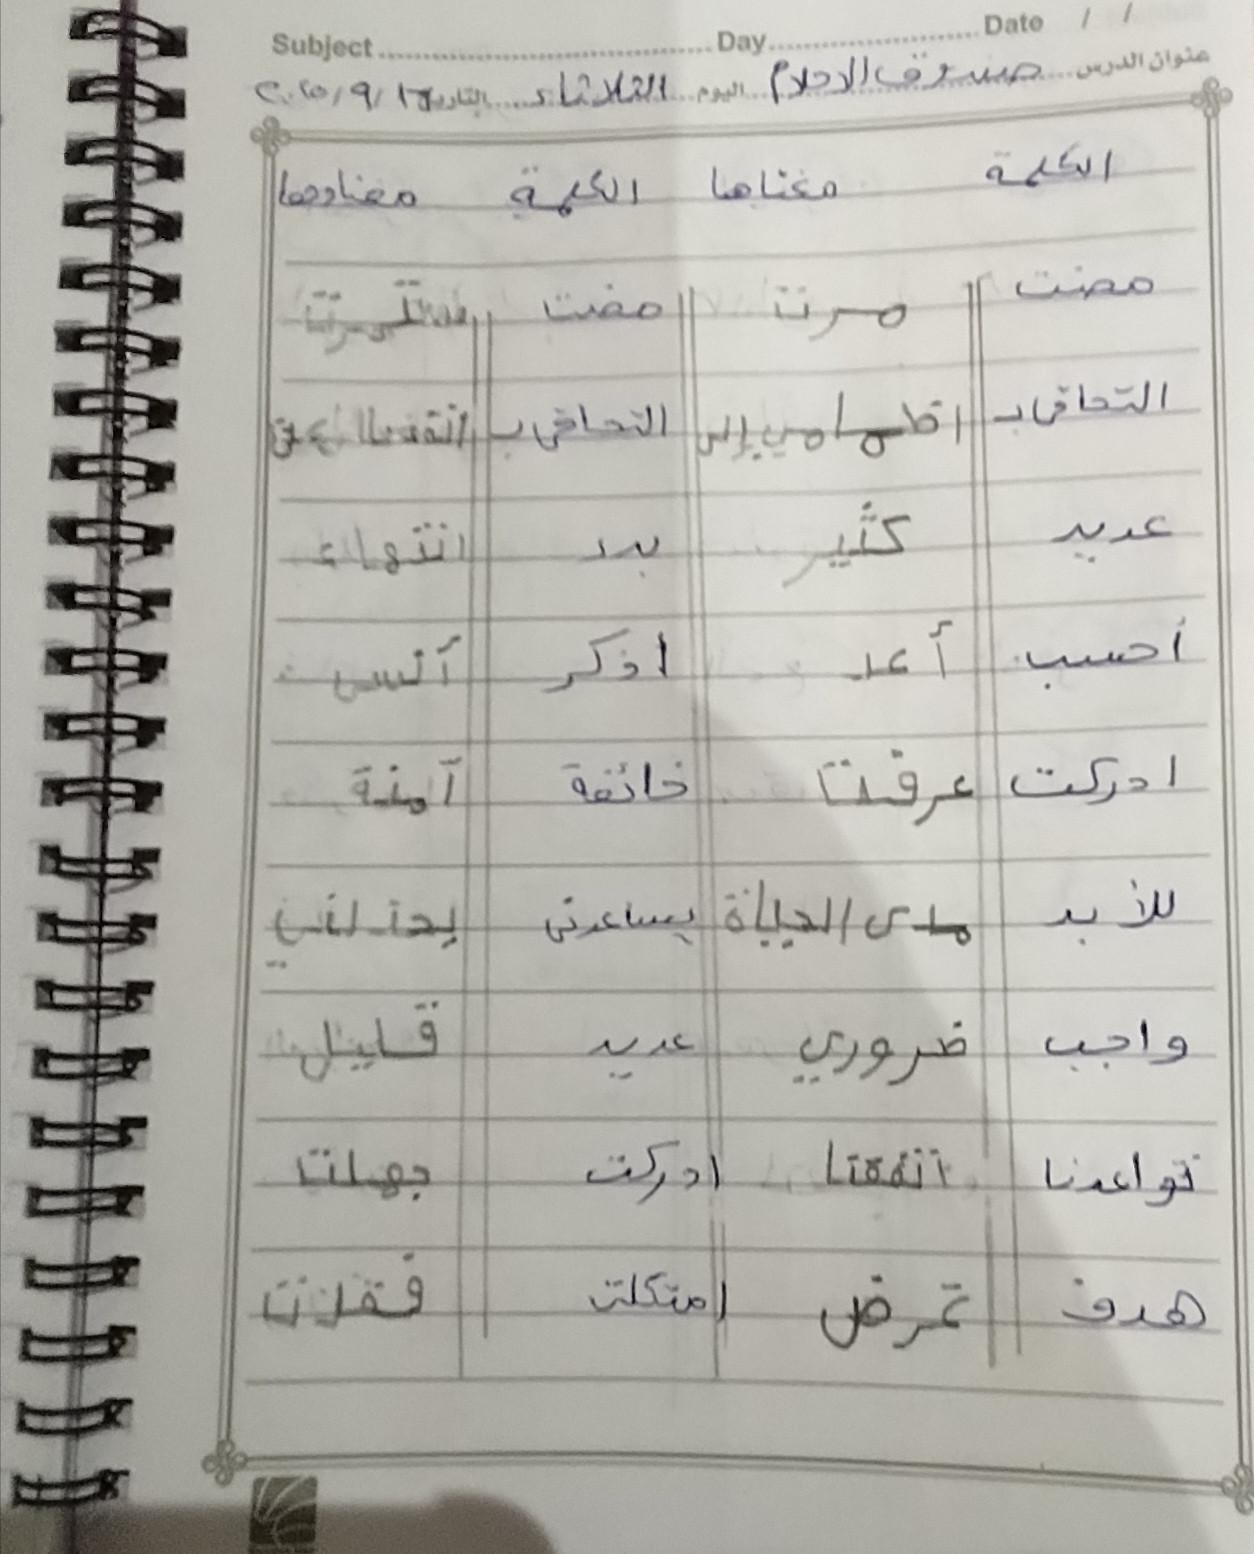 Subject ........ Day ........ Date / /
عنوان الدرس صندوق الاحلام اليوم الثلاثاء التاريخ ١٦/٩/٢٠٢٥
الكلمة معناها الكلمة مضادها
مضت مرت مضت
التحاقي بـ إلى التحاقي بـ عن
عديد كثير بدء انتهاء
أحسب أعد اذكر أنسى
ادركت عرفت خائفة آمنة
للأبد مدى الحياة يساعدني يخذلني
واجب ضروري عديد قليل
تواعدنا اتفقنا ادركت جهلت
هدف غرض امتلكت فقدت